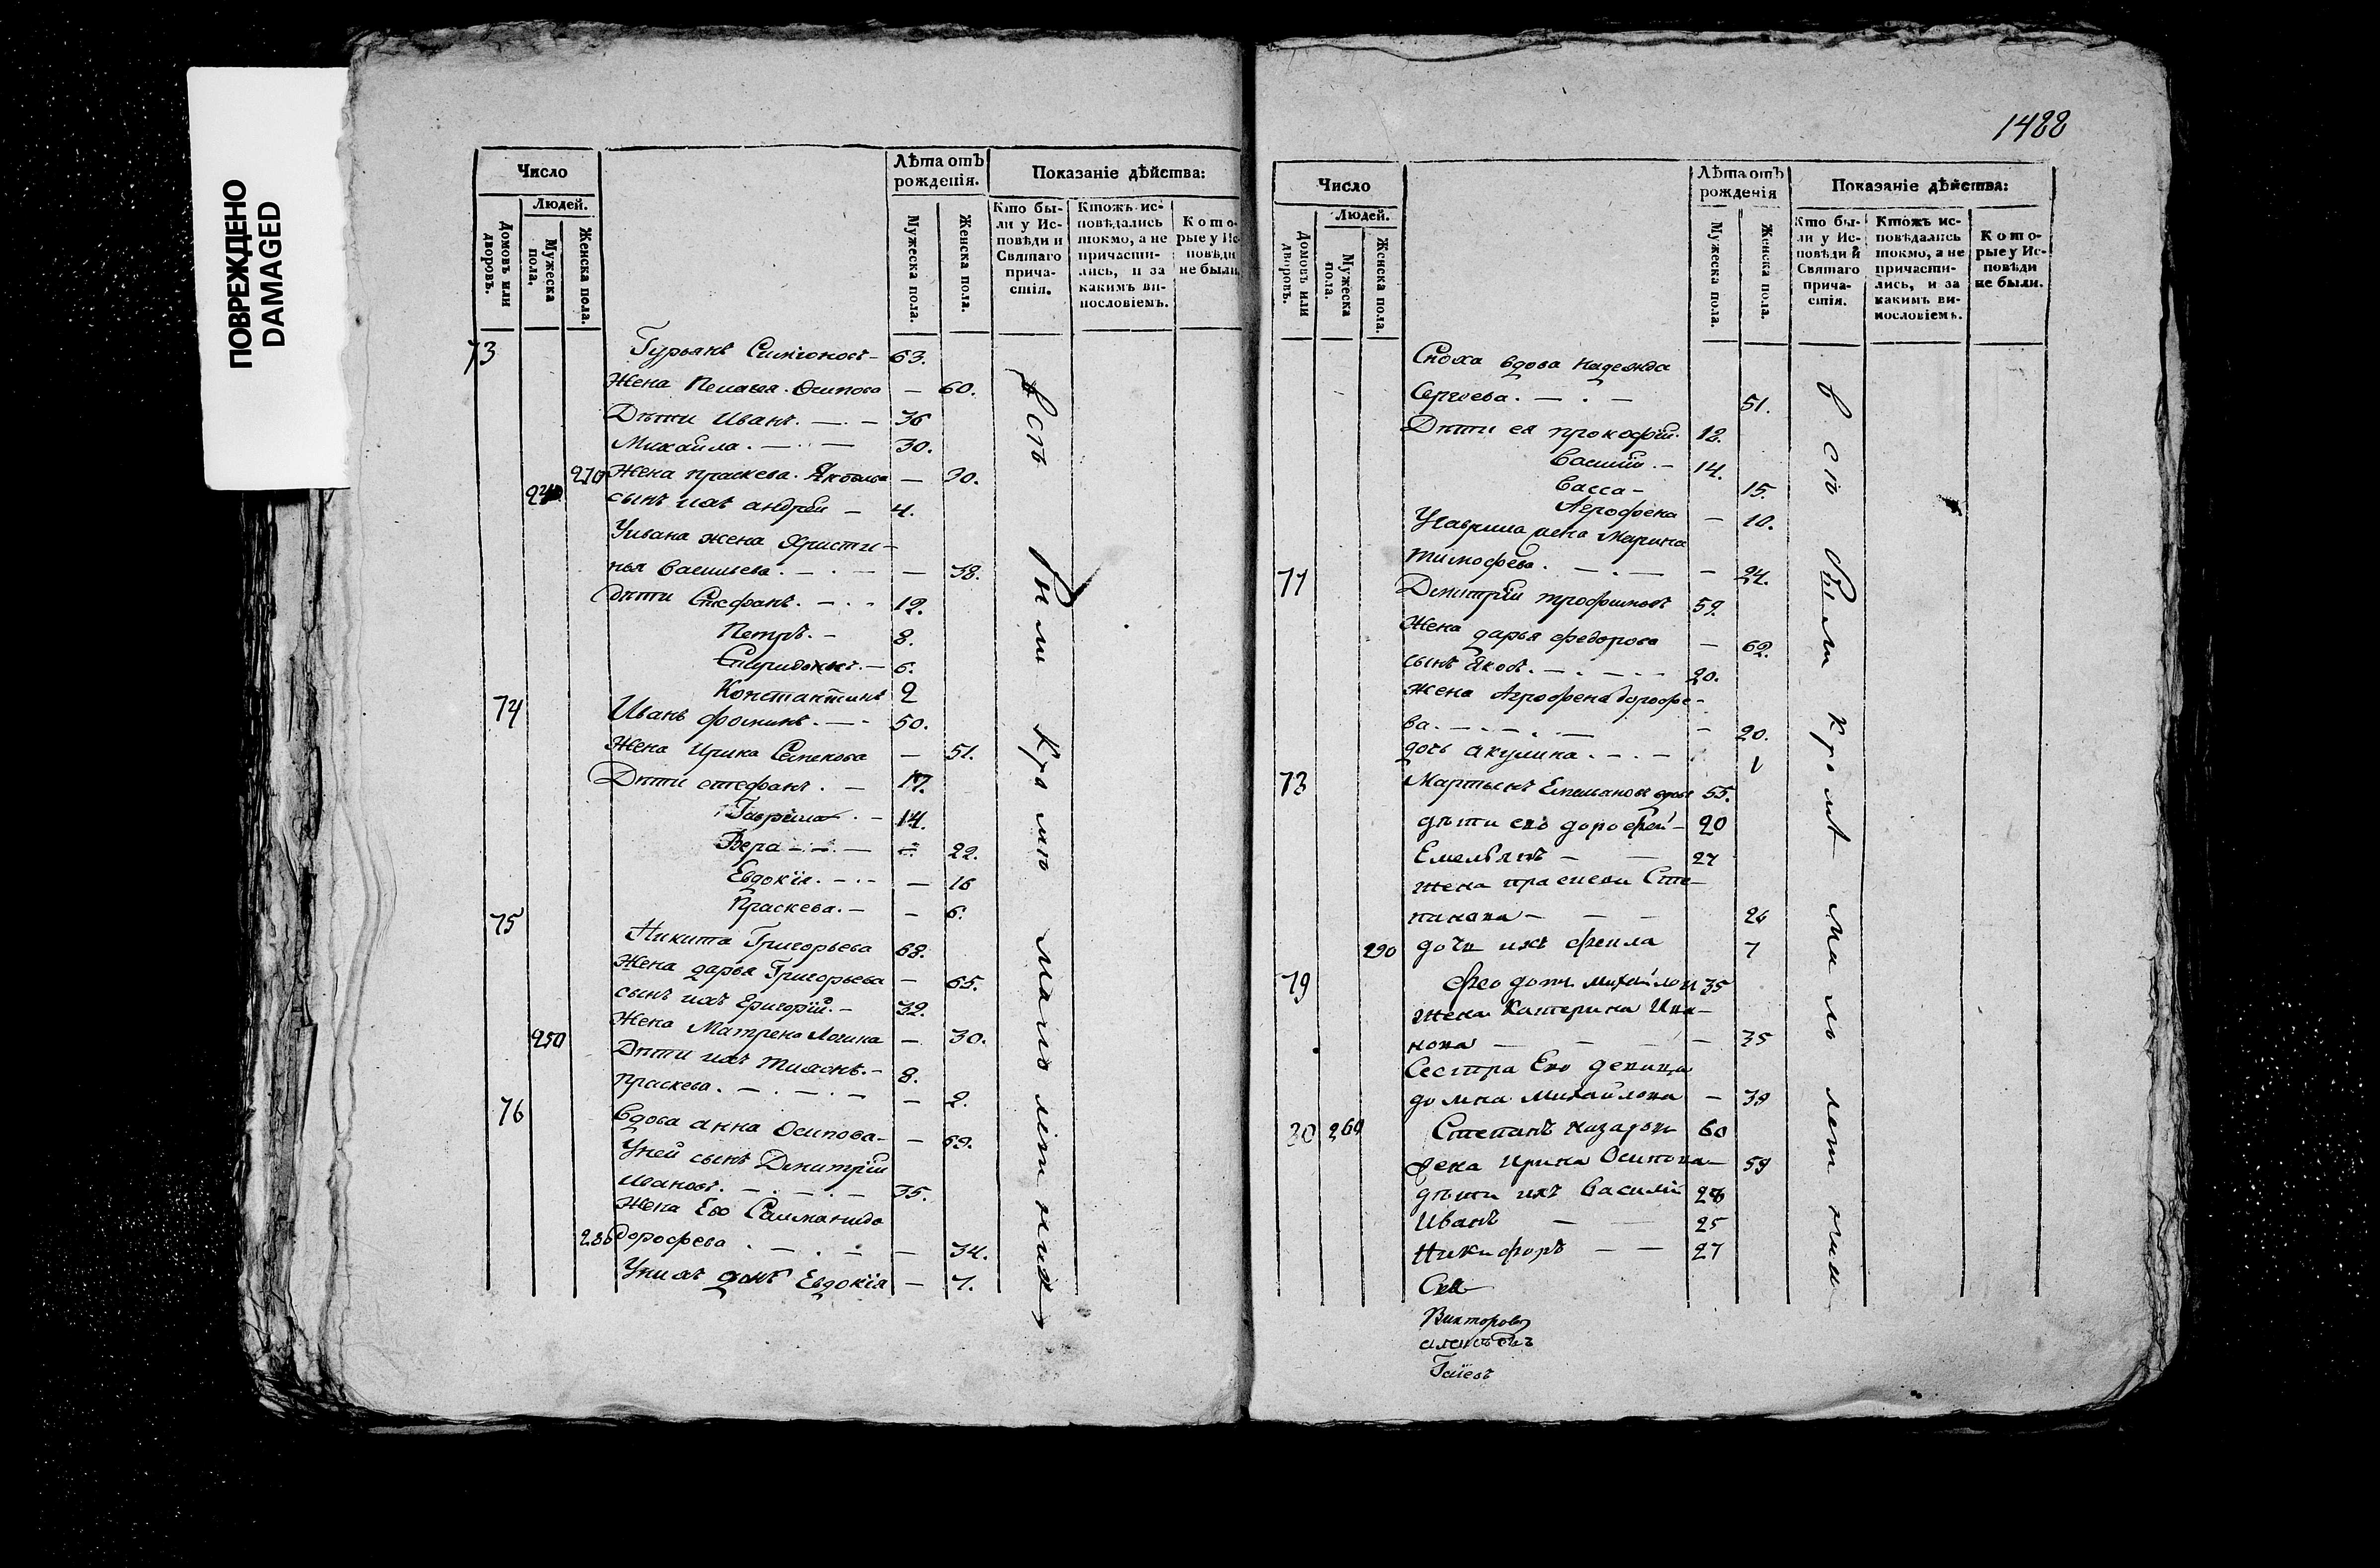 ПОВРЕЖДЕНО
DAMAGED
Число
Людей.
Домовъ или дворовъ.
Мужеска пола.
Женска пола.
Лѣта отъ рожденія.
Мужеска пола.
Женска пола.
Показаніе дѣйства:
Кто были у Исповѣди и Святаго причастія.
Ктожъ исповѣдались токмо, а не причастились, и за какимъ винословіемъ.
Которые у Исповѣди не были.
73 Гурьянъ Симионовъ — 63.
Жена Пелагея Осипова — 60.
Дѣти Иванъ. — 36
Михайла. — 30.
270 Жена праскева. Яковлева — 30.
240 сынъ ихъ андрей — 4.
Уивана жена Христи-
нья васильева. — 38.
Дѣти Стефанъ. — 12.
Петръ. — 8.
Спиридонъ. — 6.
Константинъ 2
74 Иванъ фоминъ. — 50.
Жена Ирина Семенова — 51.
Дѣти стефанъ. — 17.
Гаврила. — 14.
Вера — 22.
Евдокія. — 16
Праскева. — 6.
75 Никита Григорьева 68.
Жена дарья Григорьева — 65.
сынъ ихъ Григорій. — 32.
Жена Матрена — 30.
250 Дѣти ихъ Тихонъ. — 8.
Праскева. — 2.
76 вдова анна Осипова — 69.
Уней сынъ Дмитрій
Ивановъ. — 35.
Жена Его
280 дорофева. — 34.
Унихъ дочь Евдокія — 7.
всѣ были кроме малолѣтнихъ
1422
Число
Людей.
Домовъ или дворовъ.
Мужеска пола.
Женска пола.
Лѣта отъ рожденія
Мужеска пола.
Женска пола.
Показаніе дѣйства:
Кто были у Исповѣди и Святаго причастія.
Ктожъ исповѣдались токмо, а не причастились, и за какимъ винословіемъ.
Которые у Исповѣди не были.
Сноха вдова надежда
Сергеева. — 51.
Дѣти ея прокофій. 12.
Василій. — 14.
Васса — 15.
Агрофена — 10.
Угаврила жена Марина
тимофева. — 24.
77 Дмитрій трофимовъ 59.
Жена дарья федорова — 62.
сынъ Яковъ. — 20.
жена Агрофена дорофе-
ва. — 20.
дочь акулина. — 1
73 Мартынъ Емельяновъ вдовъ 55.
дѣти его дорофей — 20
Емельянъ — 27
жена праскеви Сте-
панова — 26
290 дочь ихъ фекла 7
79 Феодотъ михайловъ 35
жена Катерина Ива-
нова — 35
Сестра Его девица
домна михайлова — 39
30 260 Степанъ назаровъ 60
жена ирина Осипова — 59
дѣти ихъ Василій 28
Иванъ — 25
Никифоръ — 27
всѣ были кромѣ малолетнихъ